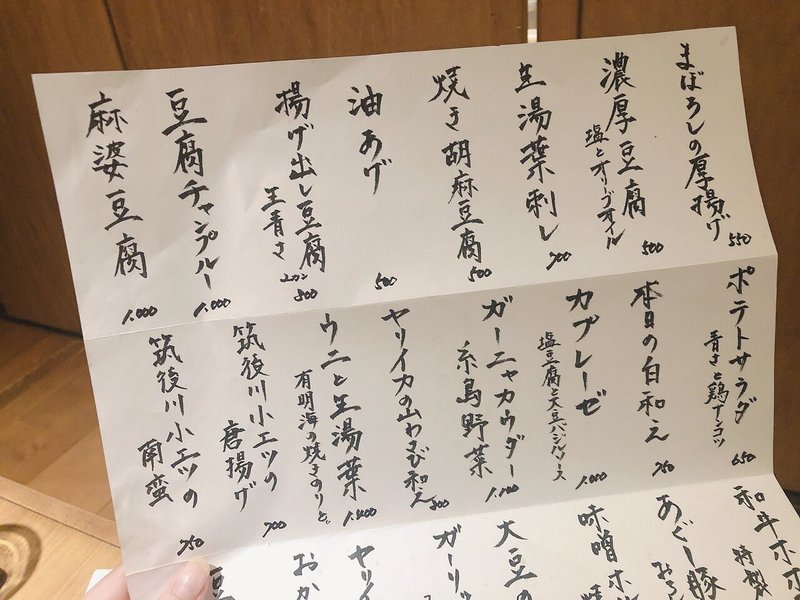 まぼろしの厚揚げ 550
濃厚豆腐
塩とオリーブオイル 500
生湯葉刺し 700
焼き胡麻豆腐 500
油あげ 500
揚げ出し豆腐
生青さ
800
豆腐チャンプルー 1,000
麻婆豆腐 1,000
ポテトサラダ
青さと鶏ナンコツ 650
本日の白和え 750
カプレーゼ
塩豆腐と大豆バジルソース 1,000
ガーニャカウダー
糸島野菜 1,100
ヤリイカの山わさび和え 800
ウニと生湯葉
有明海の焼きのりと。 1,400
筑後川小エツの
唐揚げ 700
筑後川小エツの
南蛮 750
和牛ホホ
特製
あぐー豚
味噌ホル
大豆の
ガーリッ
ヤリイ
おか